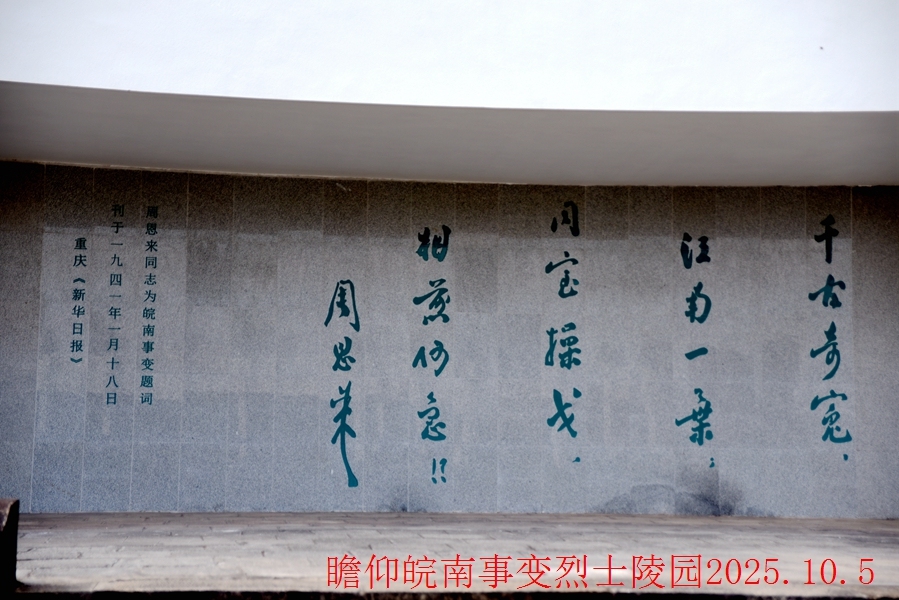 千古奇冤，
江南一叶；
同室操戈，
相煎何急！？
周恩来
周恩来同志为皖南事变题词
刊于一九四一年一月十八日
重庆《新华日报》
瞻仰皖南事变烈士陵园2025.10.5